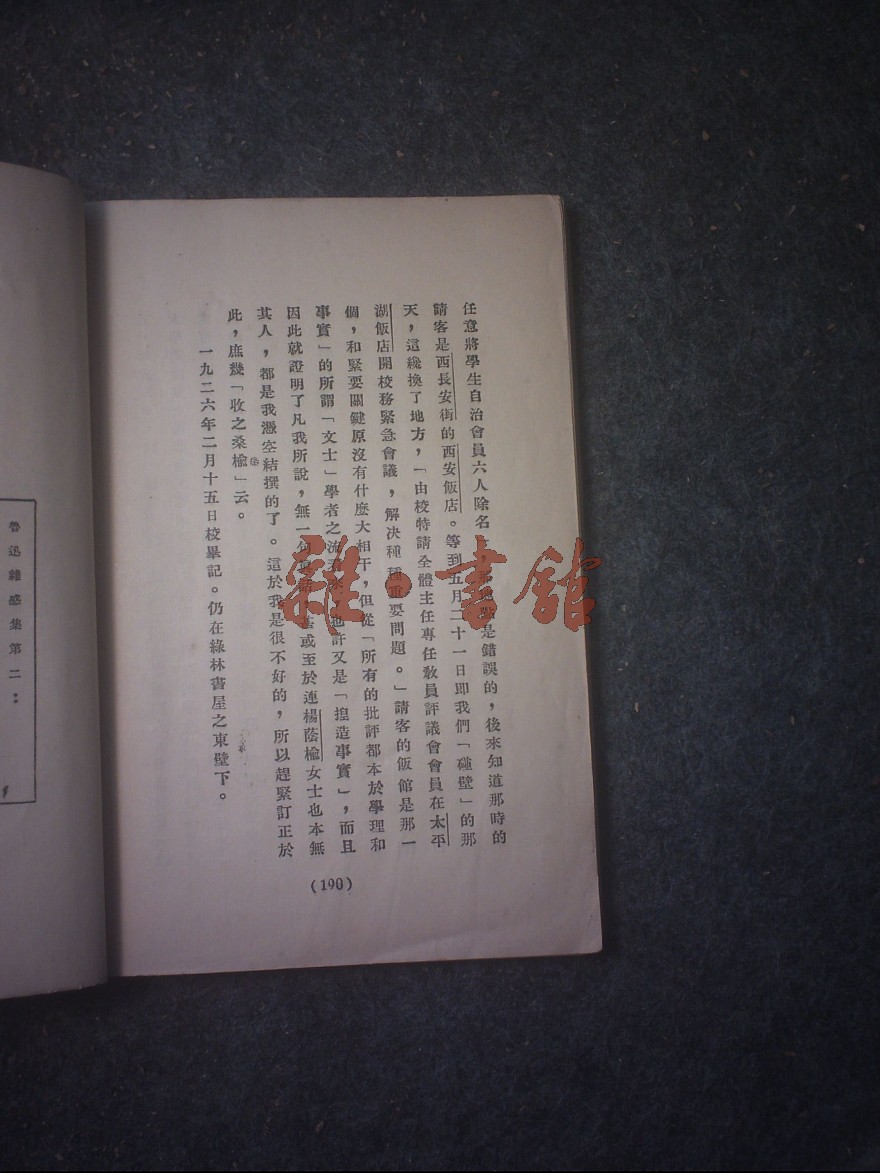 任意將學生自治會員六人除名 那地點是錯誤的，後來知道那時的
請客是西長安街的西安飯店。等到五月二十一日卽我們「碰壁」的那
天，這纔換了地方，「由校特請全體主任專任敎員評議會會員在太平
湖飯店開校務緊急會議，解決種種重要問題。」請客的飯館是那一
個，和緊要關鍵原沒有什麽大相干，但從「所有的批評都本於學理和
事實」的所謂「文士」學者之流看來，也許又是「揑造事實」，而且
因此就證明了凡我所說，無一句 甚或至於連楊蔭榆女士也本無
其人，都是我憑空結撰的了。這於我是很不好的，所以趕緊訂正於
此，庶幾「收之桑榆」云。
一九二六年二月十五日校畢記。仍在綠林書屋之東壁下。
(190)
魯迅雜感集第二：
雜·書館